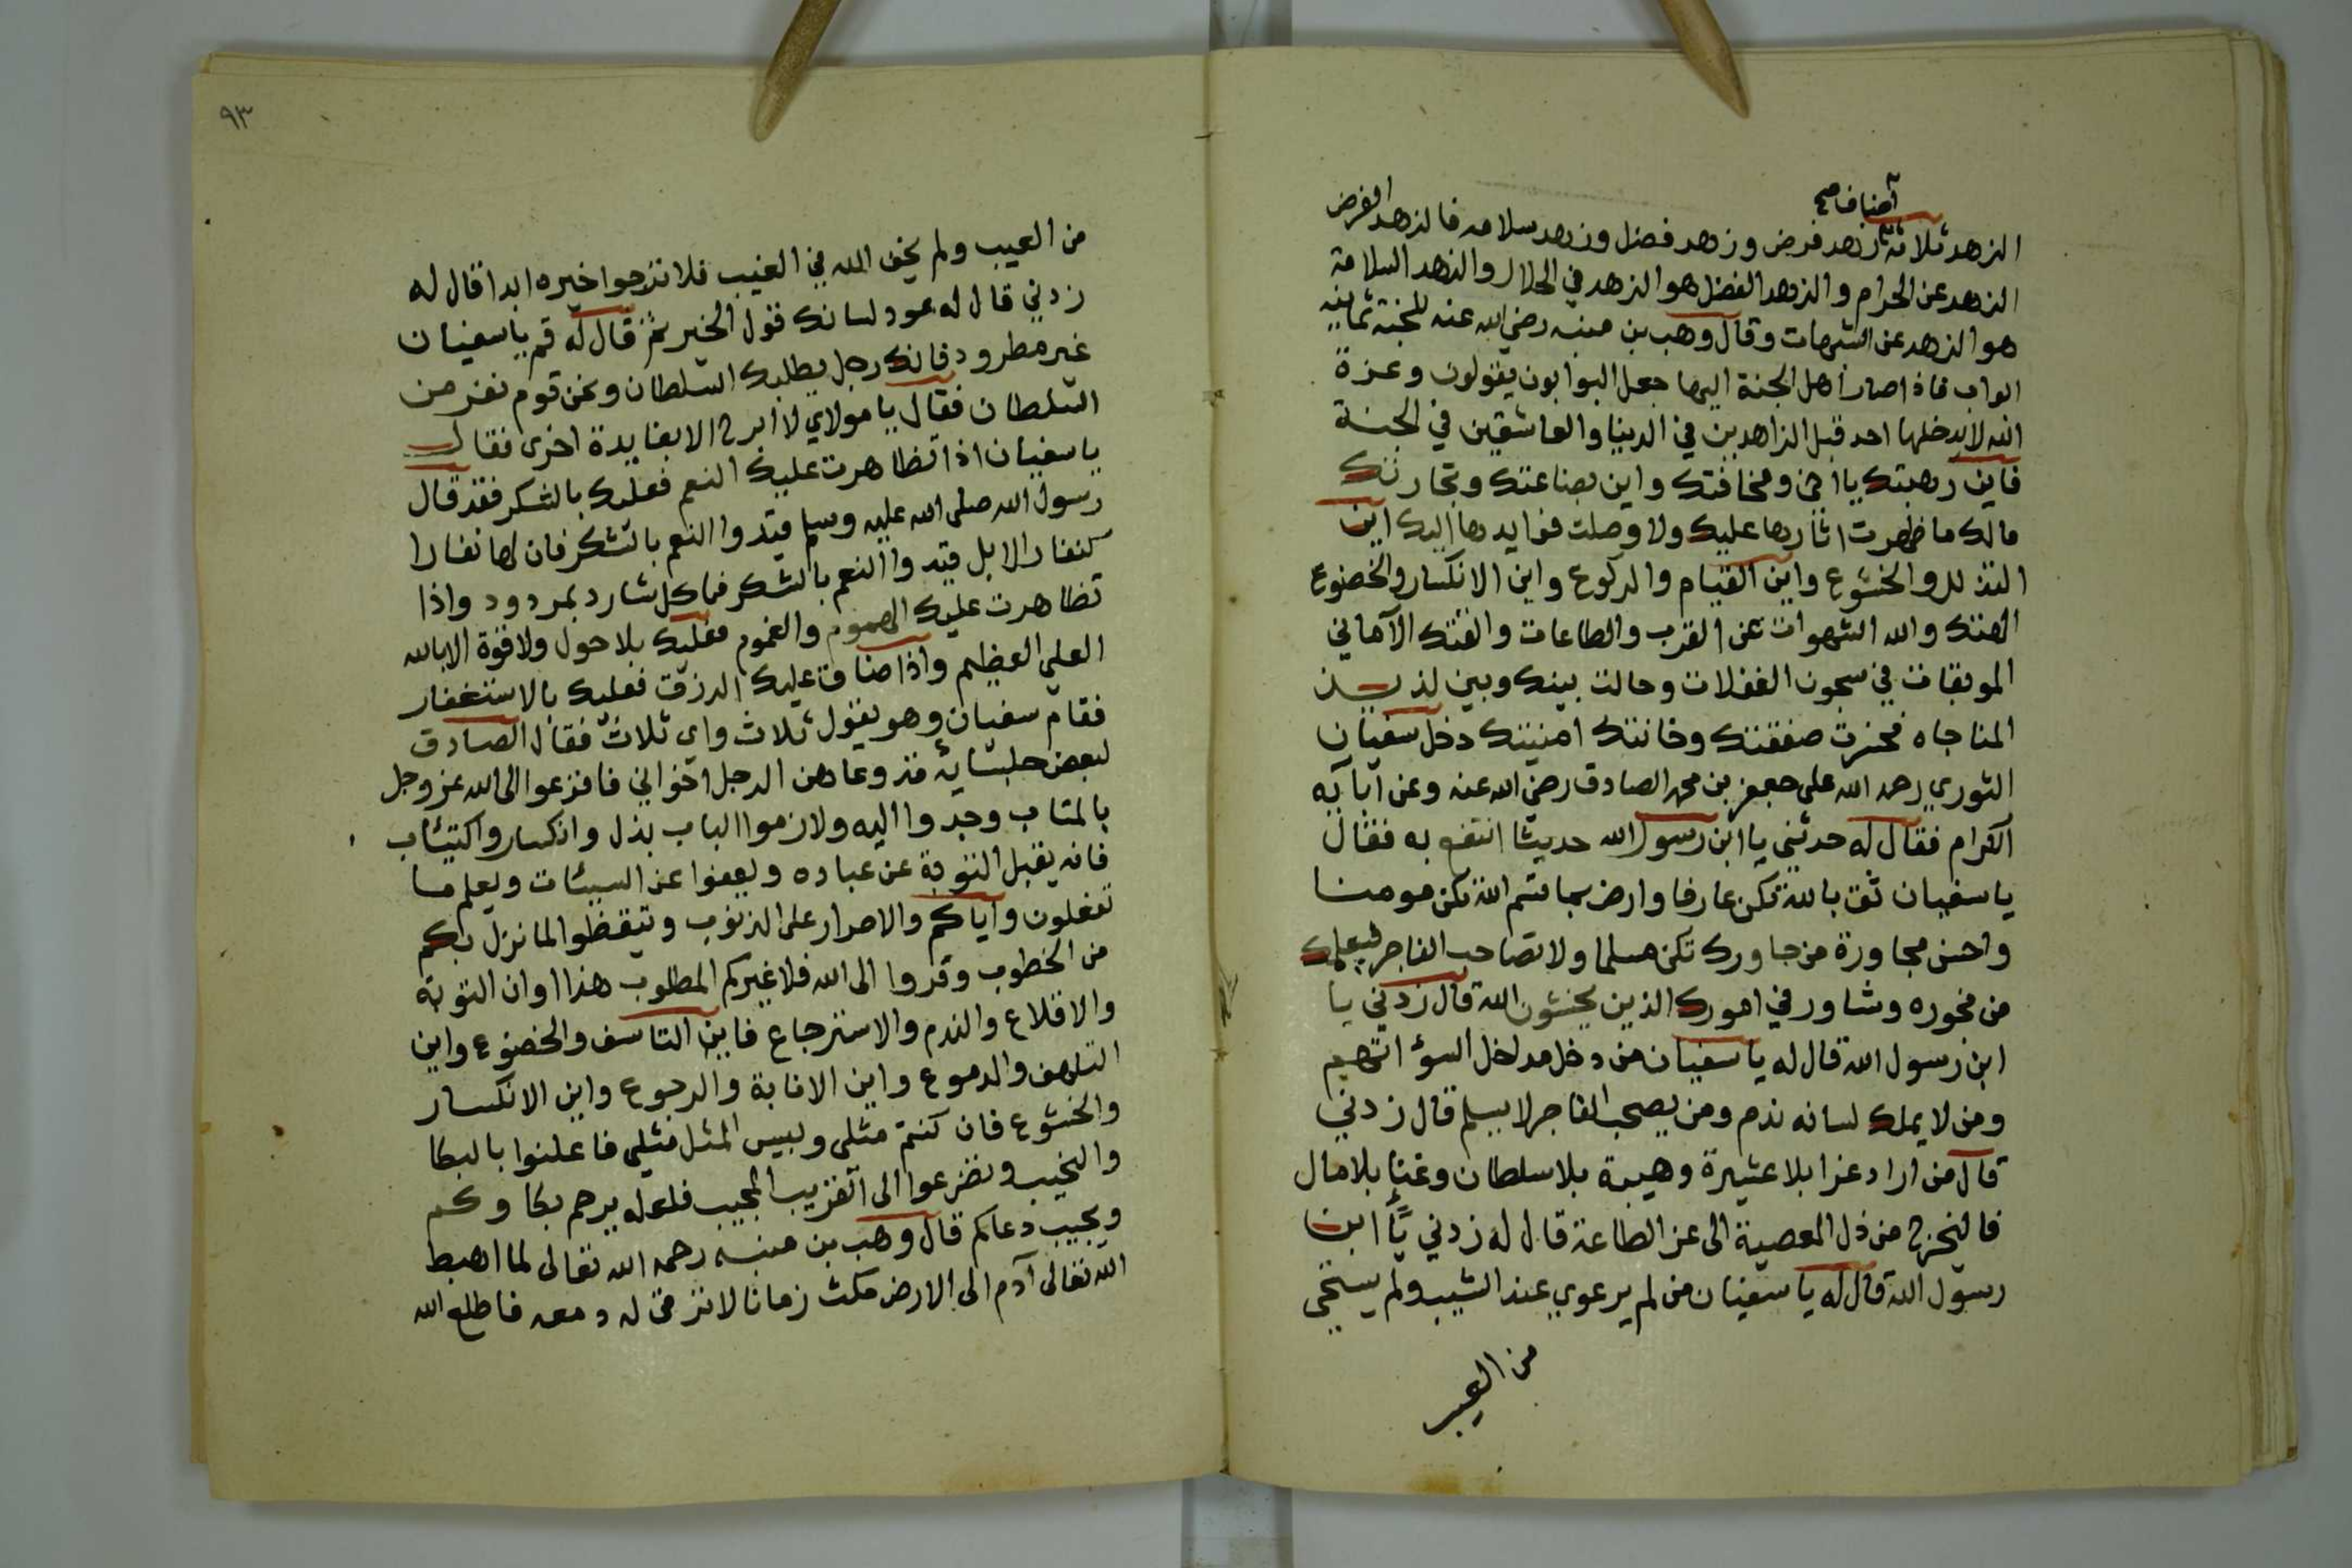 أصناف صح
الزهد ثلاثة زهد فرض وزهد فضل وزهد سلامه فالزهد الفرض
الزهد عن الحرام والزهد الفضل هو الزهد في الحلال والزهد السلامة
هو الزهد عن الشبهات وقال وهب بن منبه رضي الله عنه للجنة ثمانيه
ابواب فاذا صار اهل الجنة اليها جعل البوابون يقولون وعزة
الله لا يدخلها احد قبل الزاهدين في الدنيا والعاشقين في الجنة
فاين رهبتك يا اخي ومخافتك واين بضاعتك وتجارتك
مالك ما ظهرت اثارها عليك ولا وصلت فوايدها اليك اين
التذلل والخشوع واين القيام والركوع واين الانكسار والخضوع
الهتك والله الشهوات عن القرب والطاعات والقتك الآماني
الموبقات في سجون الغفلات وحالت بينك وبين لذيذ
المناجاه فخسرت صفقتك وخانتك امنيتك دخل سفيان
الثوري رحمه الله على جعفر بن محمد الصادق رضي الله عنه وعن آبايه
الكرام فقال له حدثني يا ابن رسول الله حديثا انتفع به فقال
يا سفيان ثق بالله تكن عارفا وارض بما قسم الله تكن مومنا
واحسن مجاورة من جاورك تكن مسلما ولا تصاحب الفاجر فيعلمك
من فجوره وشاور في امورك الذين يخشون الله قال زدني يا
ابن رسول الله قال له يا سفيان من دخل مداخل السوء اتهم
ومن لا يملك لسانه ندم ومن يصحب الفاجر لا يسلم قال زدني
قال من اراد عزا بلا عشيرة وهيبة بلا سلطان وغنا بلا مال
فاليخرج من ذل المعصية الى عز الطاعة قال له زدني يا ابن
رسول الله قال له يا سفيان من لم يرعوي عند الشيب ولم يستحي
من العيب
٩٣
من العيب ولم يخف الله في الغيب فلا ترجوا خيره ابدا قال له
زدني قال له عود لسانك قول الخير ثم قال له قم يا سفيان
غير مطرود فانك رجل يطلبك السلطان ونحن قوم نفر من
السلطان فقال يا مولاي لا ابرح الا بفايدة اخرى فقال
يا سفيان اذا تظاهرت عليك النعم فعليك بالشكر فقد قال
رسول الله صلى الله عليه وسلم قيدوا النعم بالشكر فان لها نفارا
كنفار الابل قيدوا النعم بالشكر فما كل شارد بمردود واذا
تظاهرت عليك الهموم والغموم فعليك بلا حول ولا قوة الا بالله
العلي العظيم واذا ضاق عليك الرزق فعليك بالاستغفار
فقام سفيان وهو يقول ثلاث واي ثلاث فقال الصادق
لبعض جلسايه قد وعاهن الرجل اخواني فافزعوا الى الله عز وجل
بالمتاب وجدوا اليه ولازموا الباب بذل وانكسار واكتيئاب
فانه يقبل التوبة عن عباده ويعفوا عن السيئات ويعلم ما
تفعلون واياكم والاصرار على الذنوب وتيقظوا لما نزل بكم
من الخطوب وفروا الى الله فلا غيركم المطلوب هذا اوان التوبة
والاقلاع والندم والاسترجاع فاين التاسف والخضوع واين
التلهف والدموع واين الانابة والرجوع واين الانكسار
والخشوع فان كنتم مثلي وبيس المثل مثلي فاعلنوا بالبكا
والنحيب وتضرعوا الى القريب المجيب فلعله يرحم بكاوكم
ويجيب دعاكم قال وهب بن منبه رحمه الله تعالى لما اهبط
الله تعالى آدم الى الارض مكث زمانا لا ترقى له دمعه فاطلع الله